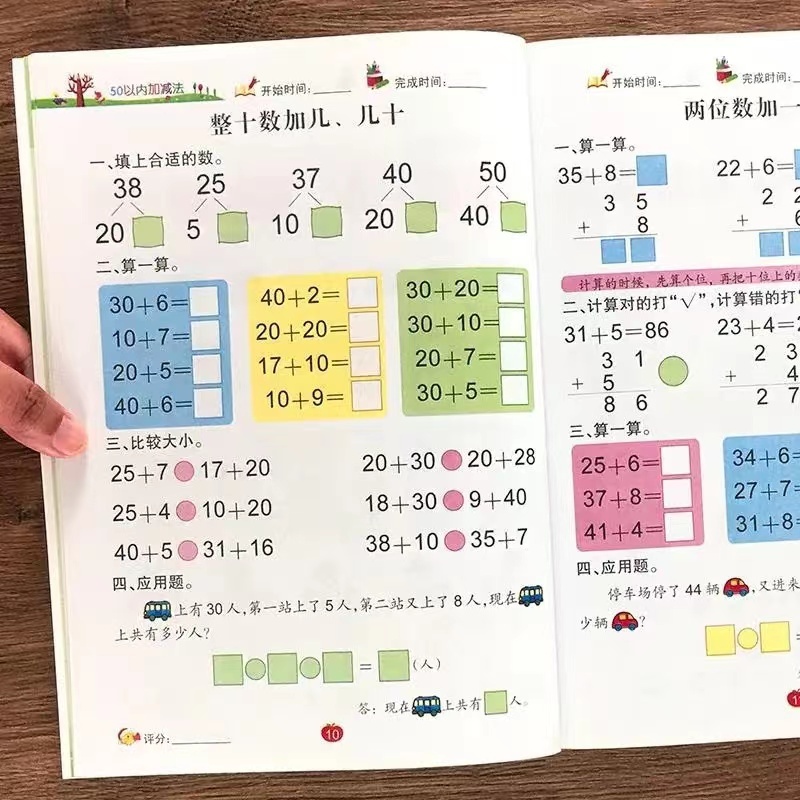 50以内加减法 开始时间: 完成时间:
整十数加几、几十
一、填上合适的数。
38 25 37 40 50
20 5 10 20 40
二、算一算。
30+6= 40+2= 30+20=
10+7= 20+20= 30+10=
20+5= 17+10= 20+7=
40+6= 10+9= 30+5=
三、比较大小。
25+7 17+20 20+30 20+28
25+4 10+20 18+30 9+40
40+5 31+16 38+10 35+7
四、应用题。
上有30人,第一站上了5人,第二站又上了8人,现在
上共有多少人?
= (人)
答: 现在 上共有 人。
评分:
10
开始时间: 完成时间:
两位数加一
一、算一算。
35+8= 22+6=
3 5 2 2
+ 8 + 6
计算的时候, 先算个位, 再把十位上的
二、计算对的打“√”,计算错的打“
31+5=86 23+4=2
3 1 2 3
+ 5 + 4
8 6 2 7
三、算一算。
25+6= 34+6=
37+8= 27+7=
41+4= 31+8=
四、应用题。
停车场停了44辆 ,又进来
少辆 ?
=